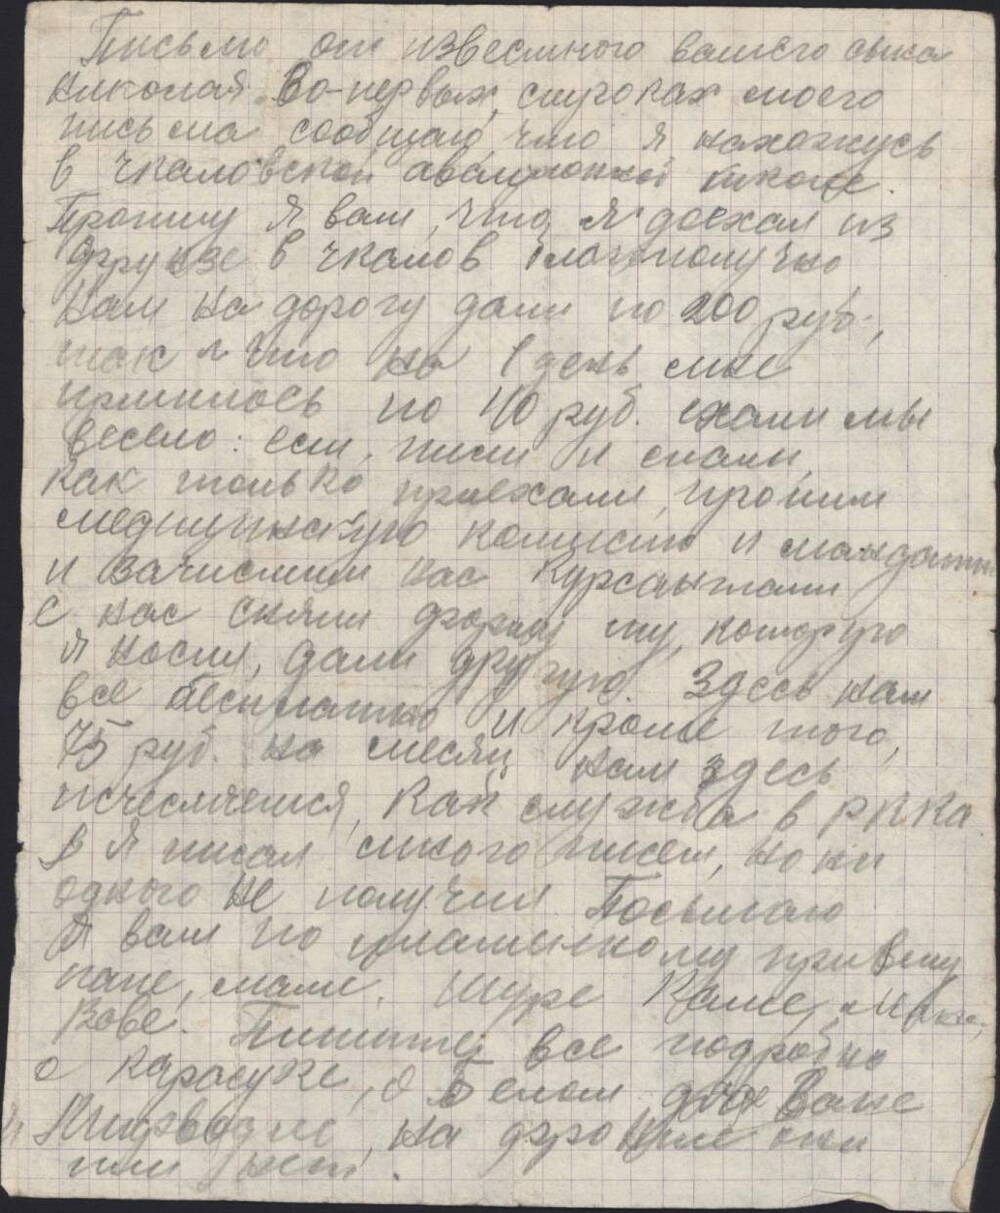 Письмо от известного вашего сына
Николая Во-первых строках моего
письма сообщаю, что я нахожусь
в Чкаловской авационной школе.
Пропишу я вам, что я доехал из
Фрунзе в Чкалов благополучно
Нам на дорогу дали по 200 руб.,
так что на 1 день мне
пришлось по 40 руб. ехали мы
весело: ели, пили и спали,
как только приехали, прошли
медицинскую комисию и мандатн
и зачислили нас курсантами
С нас сняли форму ту, которую
я носил, дали другую. Здесь нам
все бесплатно и кроме того,
75 руб. на месяц нам здесь
исчесляется, как служба в РККА
я писал много писем, но ни
одного не получил Посылаю
я вам по пламенному привету
папе, маме, Шуре Ване,
Вове. Пишите все подробно
о Карасуке, о Белом доме Ване
на фронте они
или нет.